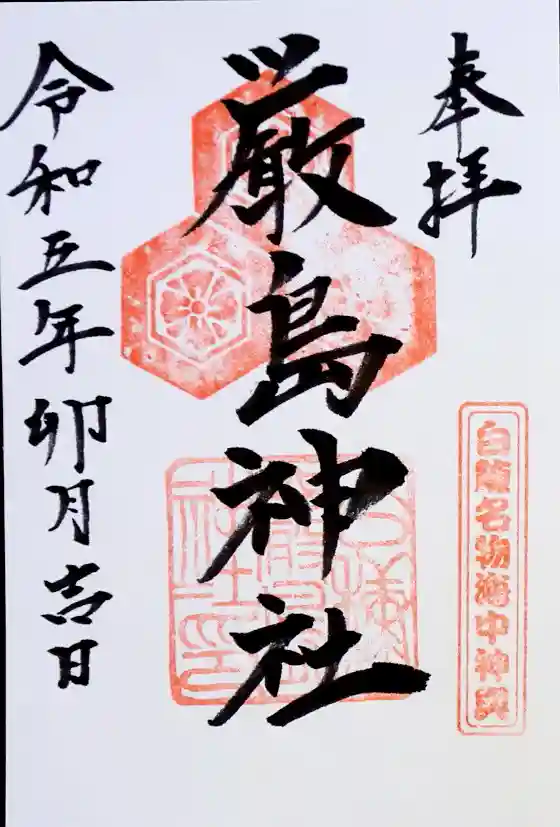 奉拝
白龍名物海中神輿
厳島神社
令和五年卯月吉日